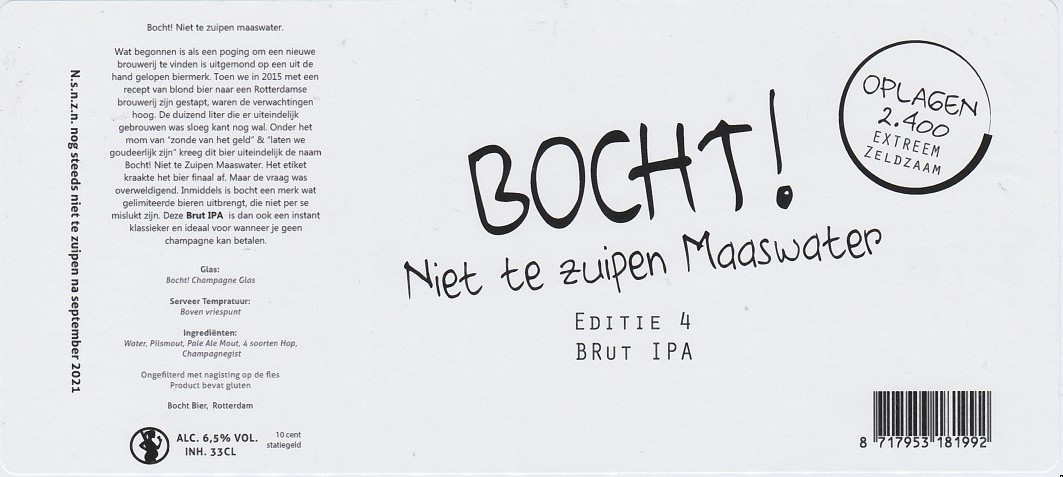 Bocht! Niet te zuipen maaswater.
Wat begonnen is als een poging om een nieuwe
brouwerij te vinden is uitgemond op een uit de
hand gelopen biermerk. Toen we in 2015 met een
recept van blond bier naar een Rotterdamse
brouwerij zijn gestapt, waren de verwachtingen
hoog. De duizend liter die er uiteindelijk
gebrouwen was sloeg kant nog wal. Onder het
mom van "zonde van het geld" & "laten we
goudeerlijk zijn" kreeg dit bier uiteindelijk de naam
Bocht! Niet te Zuipen Maaswater. Het etiket
kraakte het bier finaal af. Maar de vraag was
overweldigend. Inmiddels is bocht een merk wat
gelimiteerde bieren uitbrengt, die niet per se
mislukt zijn. Deze Brut IPA is dan ook een instant
klassieker en ideaal voor wanneer je geen
champagne kan betalen.
Glas:
Bocht! Champagne Glas
Serveer Tempratuur:
Boven vriespunt
Ingrediënten:
Water, Pilsmout, Pale Ale Mout, 4 soorten Hop,
Champagnegist
Ongefilterd met nagisting op de fles
Product bevat gluten
Bocht Bier, Rotterdam
ALC. 6,5% VOL.
INH. 33CL
10 cent
statiegeld
N.s.n.z.n. nog steeds niet te zuipen na september 2021
BOCHT!
Niet te zuipen Maaswater
EDITIE 4
BRUT IPA
OPLAGEN
2.400
EXTREEM
ZELDZAAM
8 717953 181992